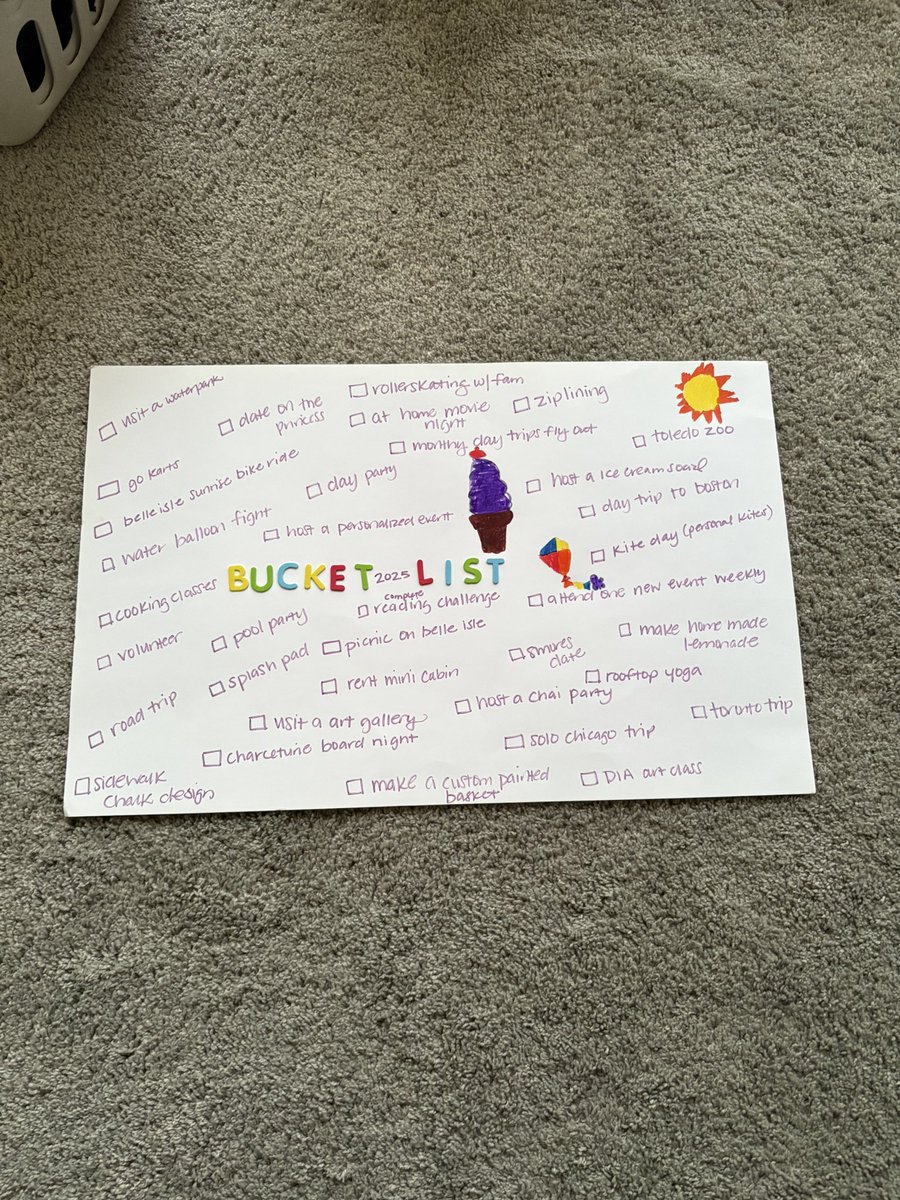 visit a waterpark
date on the
princess
rollerskating w/ fam
at home movie
night
ziplining
monthly day trips fly out
toledo zoo
go karts
belle isle sunrise bike ride
day party
host a ice cream soacl
day trip to boston
water balloon fight
host a personalized event
kite day (personal kites)
BUCKET 2025 LIST
cooking classes
complete
reading challenge
attend one new event weekly
volunteer
pool party
picnic on belle isle
smores
date
make home made
lemonade
splash pad
rent mini cabin
rooftop yoga
road trip
visit a art gallery
host a chai party
toronto trip
charceturie board night
solo chicago trip
sidewalk
chalk design
make a custom painted
basket
DIA art class